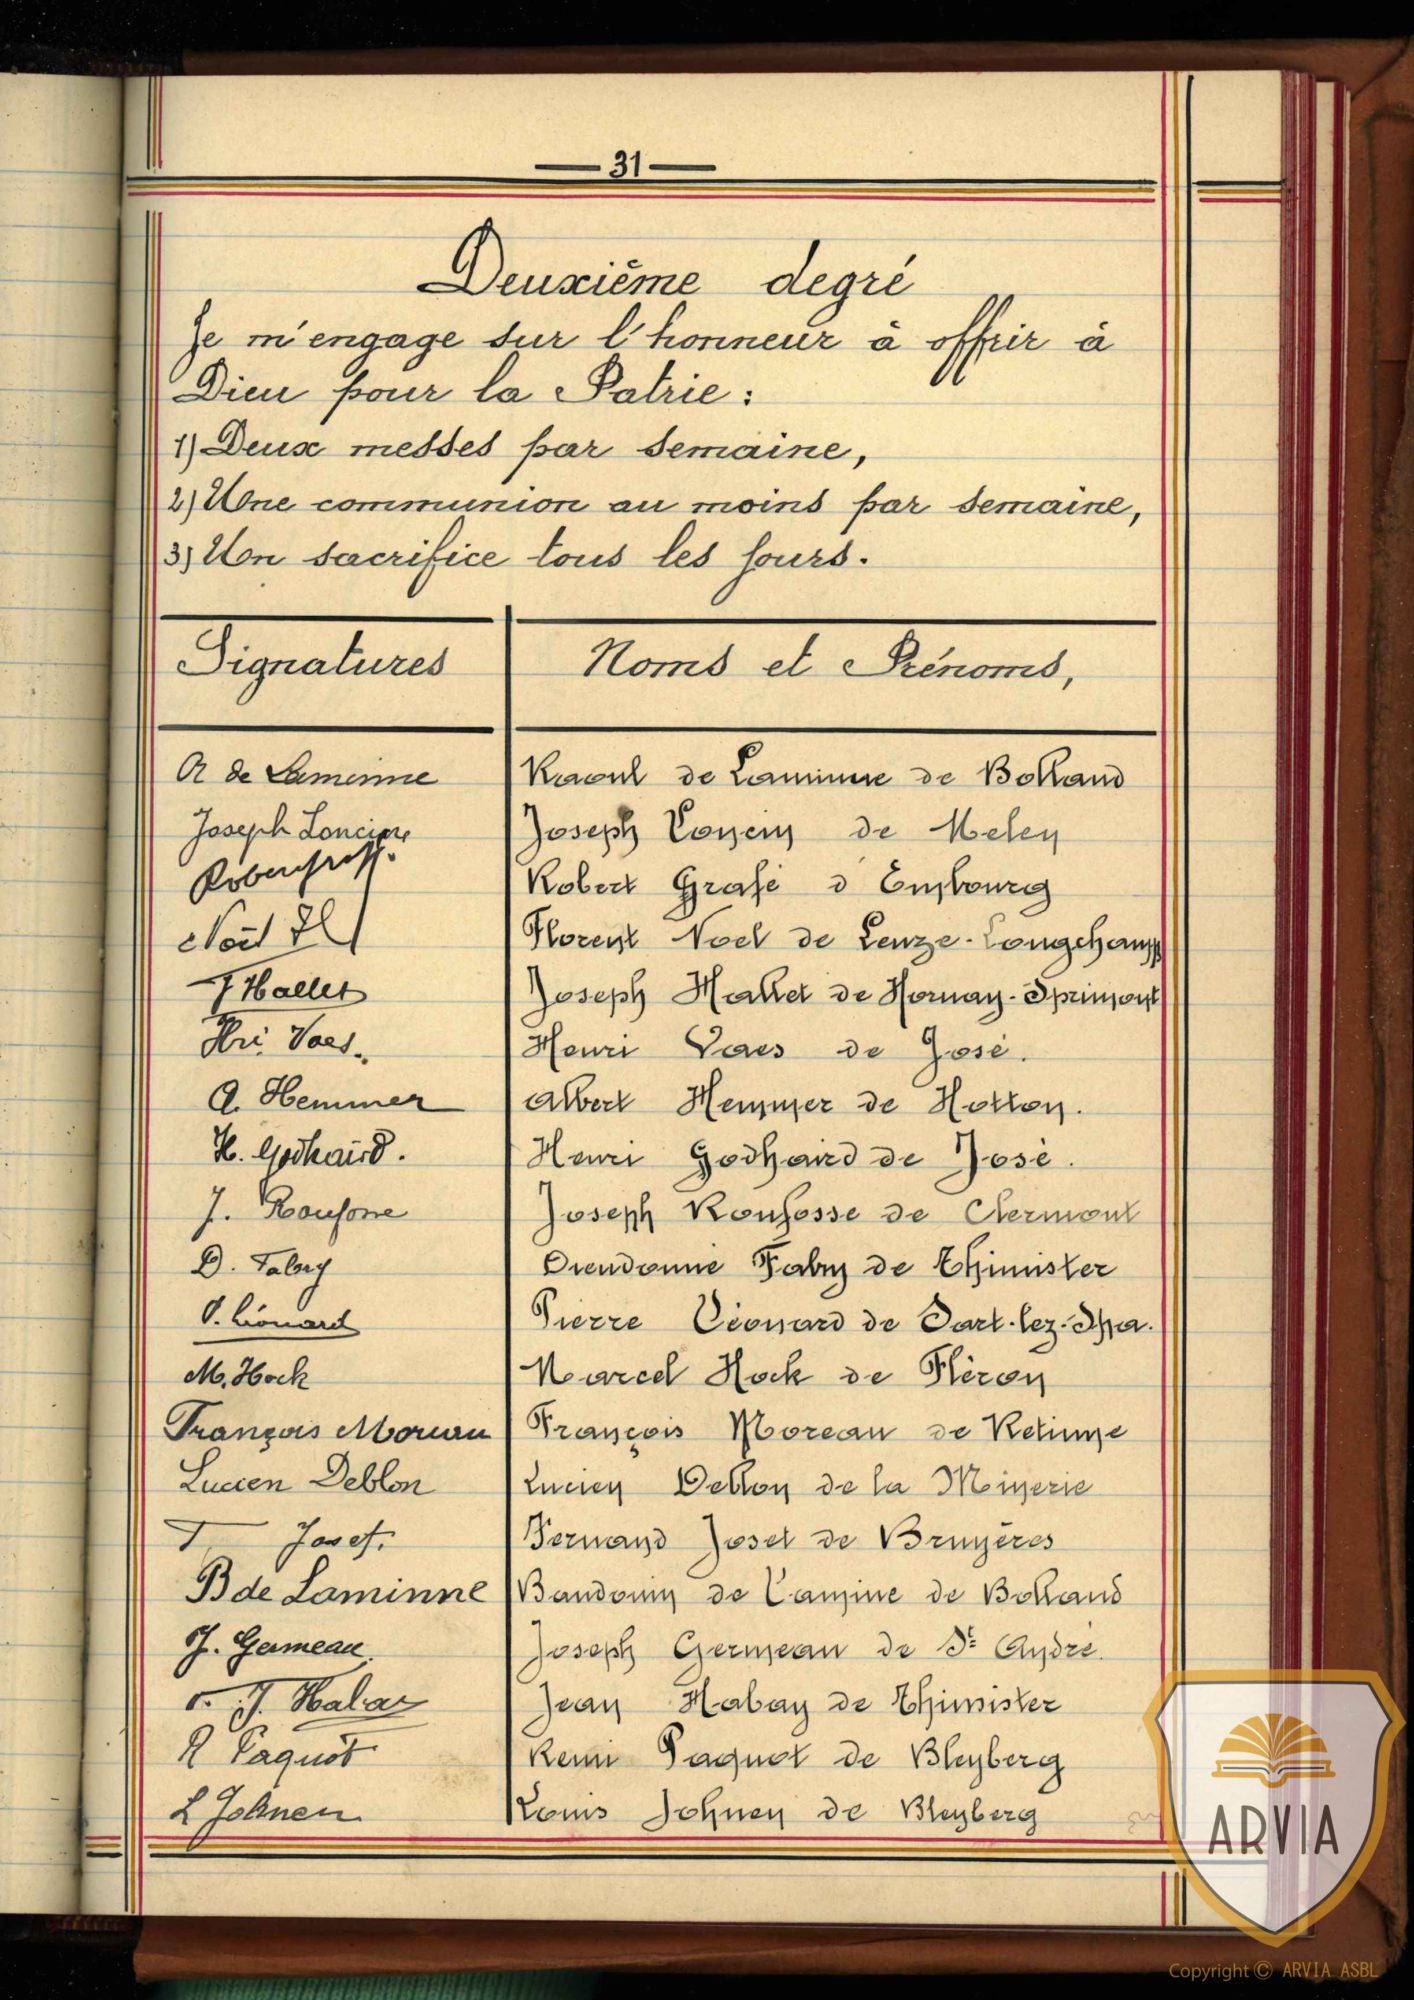 — 31 —
Deuxième degré
Je m'engage sur l'honneur à offrir à
Dieu pour la Patrie :
1) Deux messes par semaine,
2) Une communion au moins par semaine,
3) Un sacrifice tous les jours.
Signatures Noms et Prénoms,
R de Laminne Raoul de Laminne de Bolland
Joseph Loncin Joseph Loncin de Melen
Robert Grafé Robert Grafé d'Embourg
Noël Fl Florent Noel de Leuze-Longchamps
J Hallet Joseph Hallet de Hornay-Sprimont
Hri. Vaes. Henri Vaes de José.
A. Hemmer Albert Hemmer de Hotton.
H. Godhaird. Henri Godhaird de José.
J. Roufosse Joseph Roufosse de Clermont
D. Fabry Dieudonné Fabry de Thimister
P. Léonard Pierre Léonard de Sart-lez-Spa.
M. Hock Marcel Hock de Fléron
François Moreau François Moreau de Retinne
Lucien Deblon Lucien Deblon de la Minerie
F Joset. Fernand Joset de Bruyères
B de Laminne Baudouin de Lamine de Bolland
J. Germeau Joseph Germeau de St André.
J. Habay Jean Habay de Thimister
R Paquot Remi Paquot de Bleyberg
L Johnen Louis Johnen de Bleyberg
ARVIA
Copyright © ARVIA ASBL